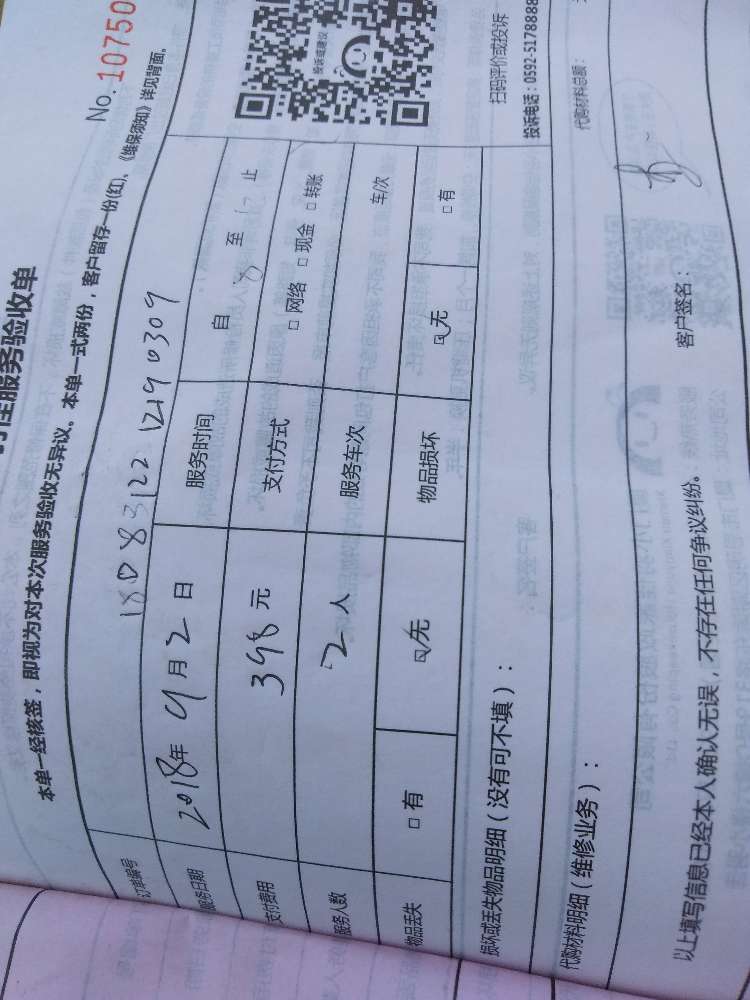 佳服务验收单
No. 10750
本单一经核签，即视为对本次服务验收无异议。本单一式两份，客户留存一份(红)、《维保须知》详见背面。
订单编号 18083122 12190309
服务日期 2018年 9月 2 日 服务时间 自 8 至 止
支付费用 398 元 支付方式 □ 网络 □ 现金 □ 转账
服务人数 2 人 服务车次 车/次
物品丢失 □ 有 ☑ 无 物品损坏 ☑ 无 □ 有
损坏或丢失物品明细（没有可不填）：
投诉或建议
扫码评价或投诉
投诉电话：0592-5178888
代购材料明细（维修业务）：
代购材料总额：
以上填写信息已经本人确认无误，不存在任何争议纠纷。
客户签名：